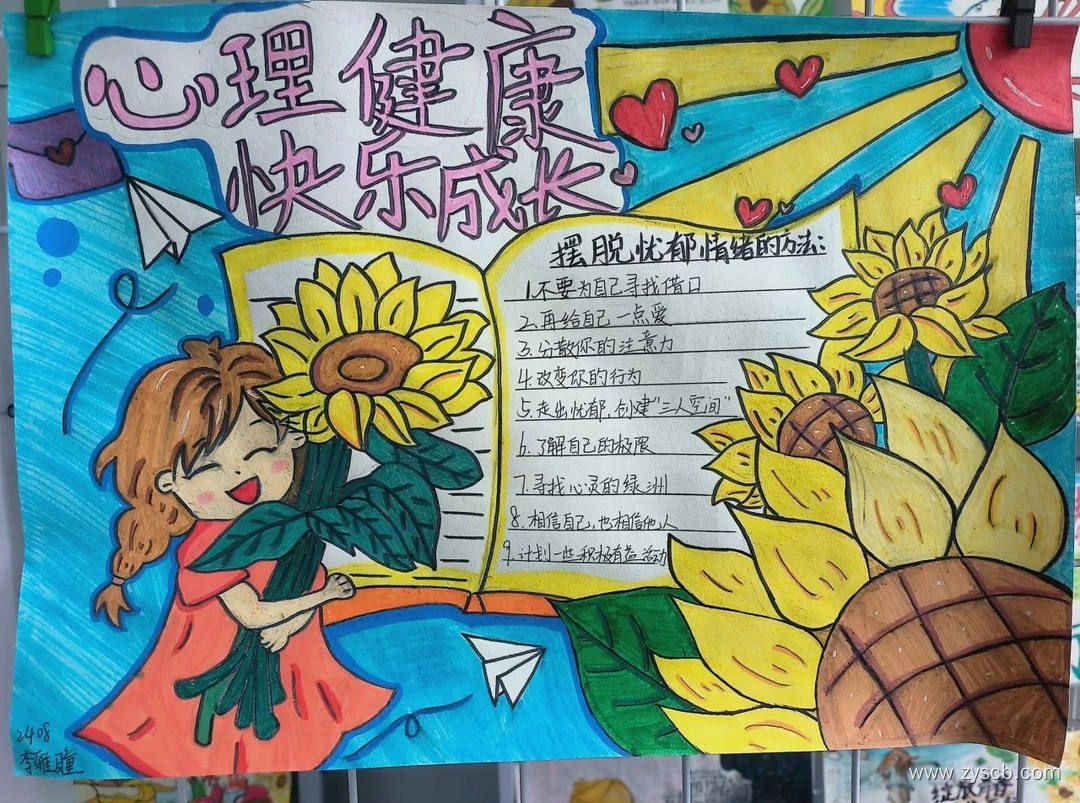 心理健康
快乐成长
摆脱忧郁情绪的方法:
1.不要为自己寻找借口
2.再给自己一点爱
3.分散你的注意力
4.改变你的行为
5.走出忧郁,创建"三人空间"
6.了解自己的极限
7.寻找心灵的绿洲
8.相信自己,也相信他人
9.计划一些积极有益活动
2408
李雅瞳
www.zyscb.com